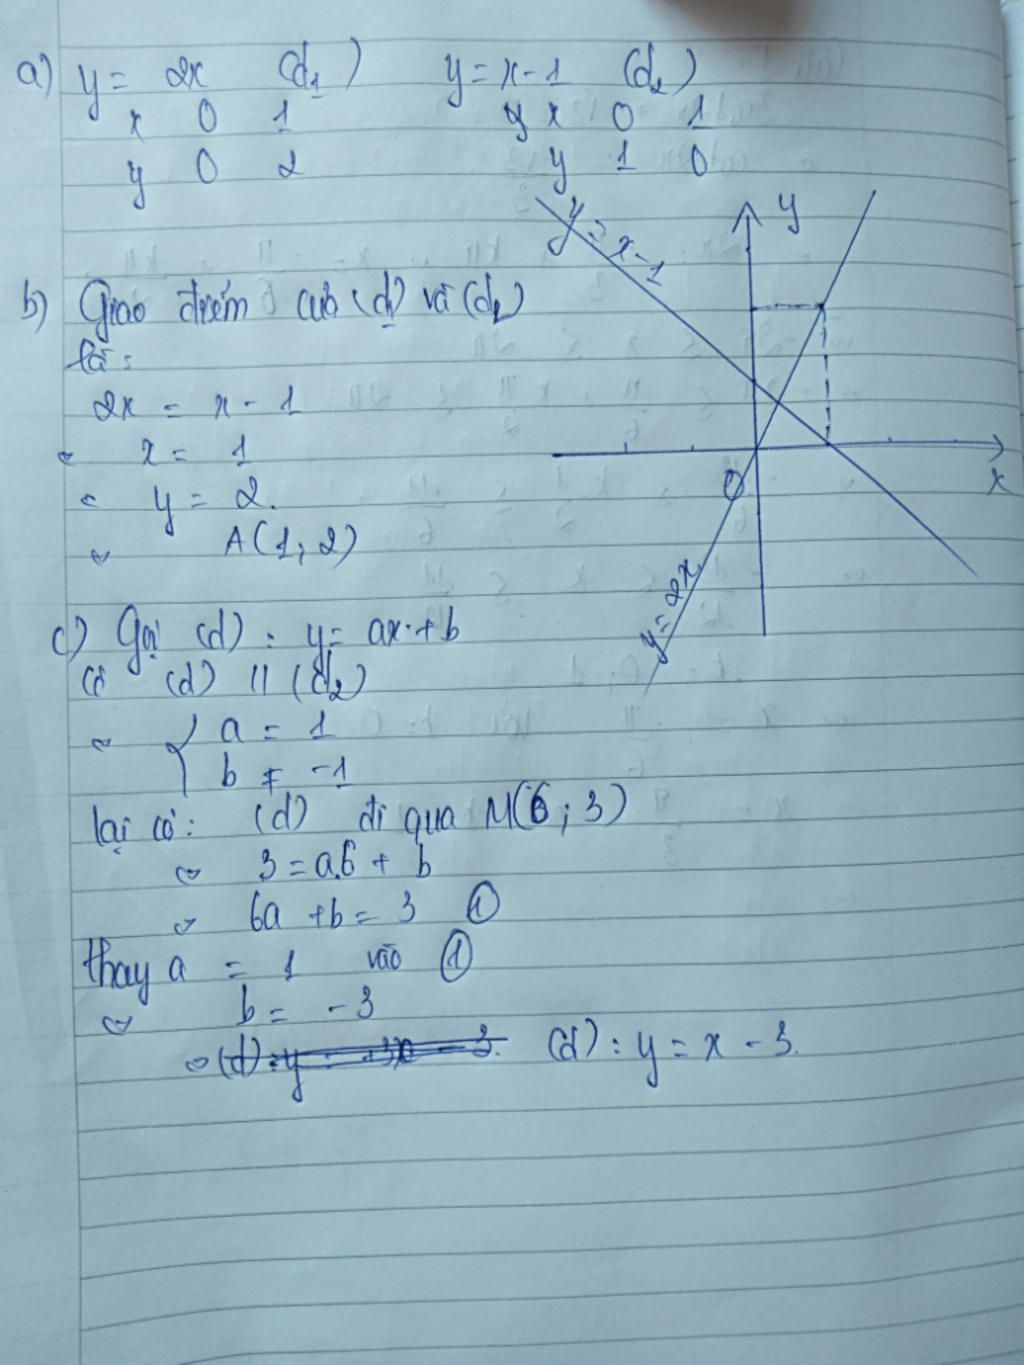 a) y = 2x (d₁) y = x - 1 (d₂)
x 0 1 x 0 1
y 0 2 y 1 0
y
y = x - 1
x
O
y = 2x
b) Giao điểm của (d₁) và (d₂)
là:
2x = x - 1
x = 1
y = 2.
A(1; 2)
c) Gọi (d) : y = ax + b
Có (d) // (d₂)
⇔ { a = 1
b ≠ -1
lại có: (d) đi qua M(6; 3)
⇔ 3 = a.6 + b
⇔ 6a + b = 3 ①
thay a = 1 vào ①
⇔ b = -3
⇔ (d) : y = x - 3.